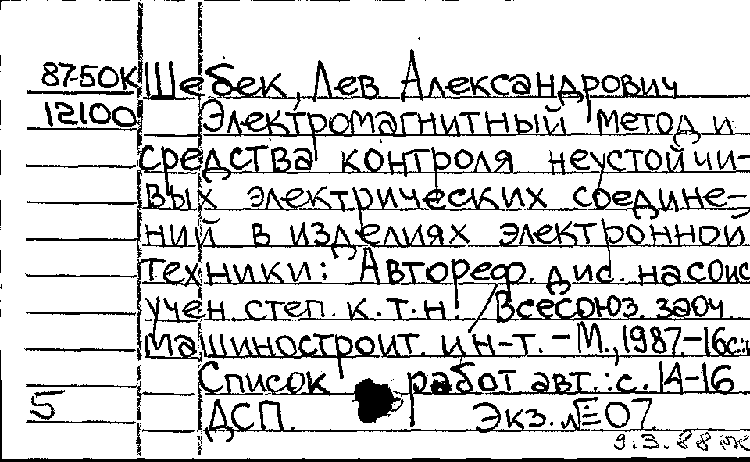 87-50к Шебек, Лев Александрович
12100 Электромагнитный метод и
средства контроля неустойчи-
вых электрических соедине-
ний в изделиях электронной
техники: Автореф. дис. на соис
учен. степ. к.т.н. / Всесоюз. заоч.
машиностроит. ин-т. - М., 1987. - 16 с.:
Список работ авт.: с. 14-16
5 ДСП. Экз. № 07
9.3.88